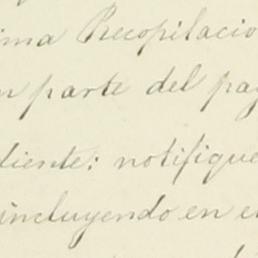 ima Recopilacio
n parte del pag
diente: notifique
incluyendo en e